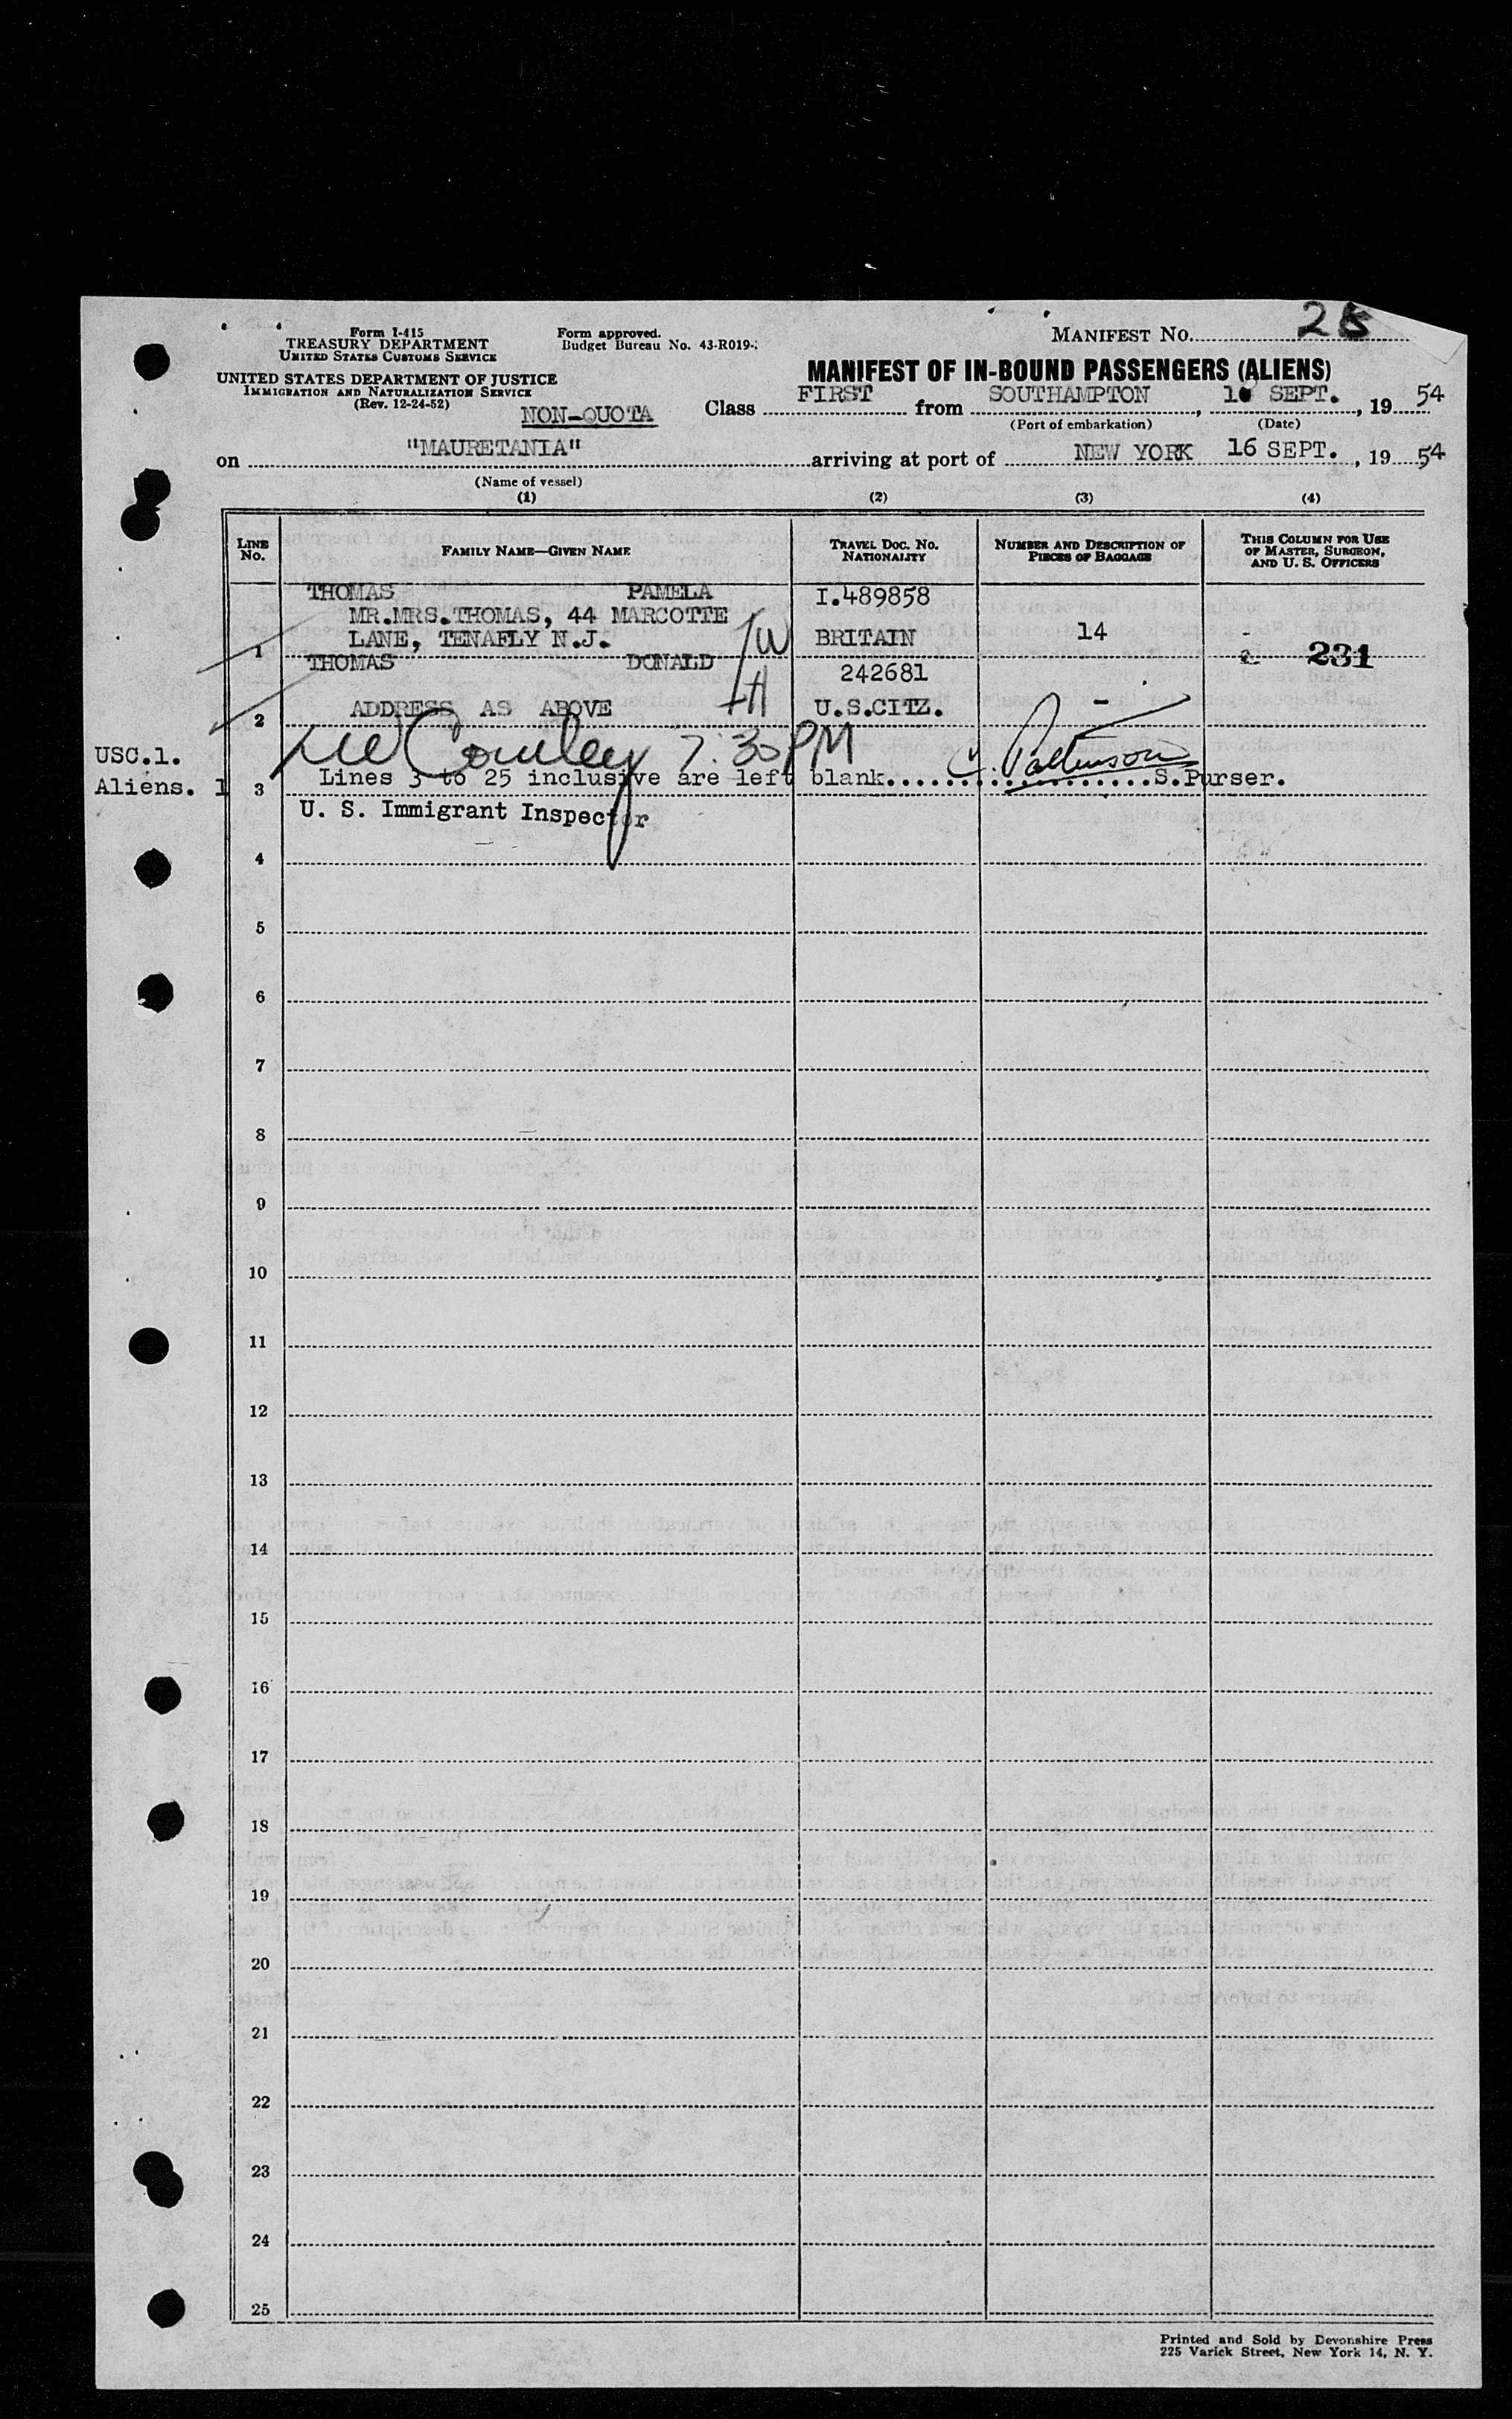 Form I-415
TREASURY DEPARTMENT
UNITED STATES CUSTOMS SERVICE
UNITED STATES DEPARTMENT OF JUSTICE
IMMIGRATION AND NATURALIZATION SERVICE
(Rev. 12-24-52)
Form approved.
Budget Bureau No. 43-R019-
MANIFEST No.
MANIFEST OF IN-BOUND PASSENGERS (ALIENS)
NON-QUOTA
Class FIRST from SOUTHAMPTON, SEPT., 19 54
(Port of embarkation) (Date)
on "MAURETANIA" arriving at port of NEW YORK 16 SEPT., 19 54
(Name of vessel)
(1) (2) (3) (4)
LINE No. FAMILY NAME—GIVEN NAME TRAVEL DOC. No. NATIONALITY NUMBER AND DESCRIPTION OF PIECES OF BAGGAGE THIS COLUMN FOR USE OF MASTER, SURGEON, AND U. S. OFFICERS
THOMAS PAMELA I.489858
MR.MRS.THOMAS, 44 MARCOTTE
1 LANE, TENAFLY N.J. W BRITAIN 14 - 231
THOMAS DONALD 242681
2 ADDRESS AS ABOVE H U.S.CITZ. -
7:30 PM
USC.1.
Aliens. 1
3 Lines 3 to 25 inclusive are left blank.....................S.Purser.
U. S. Immigrant Inspector
4
5
6
7
8
9
10
11
12
13
14
15
16
17
18
19
20
21
22
23
24
25
Printed and Sold by Devonshire Press
225 Varick Street, New York 14, N. Y.